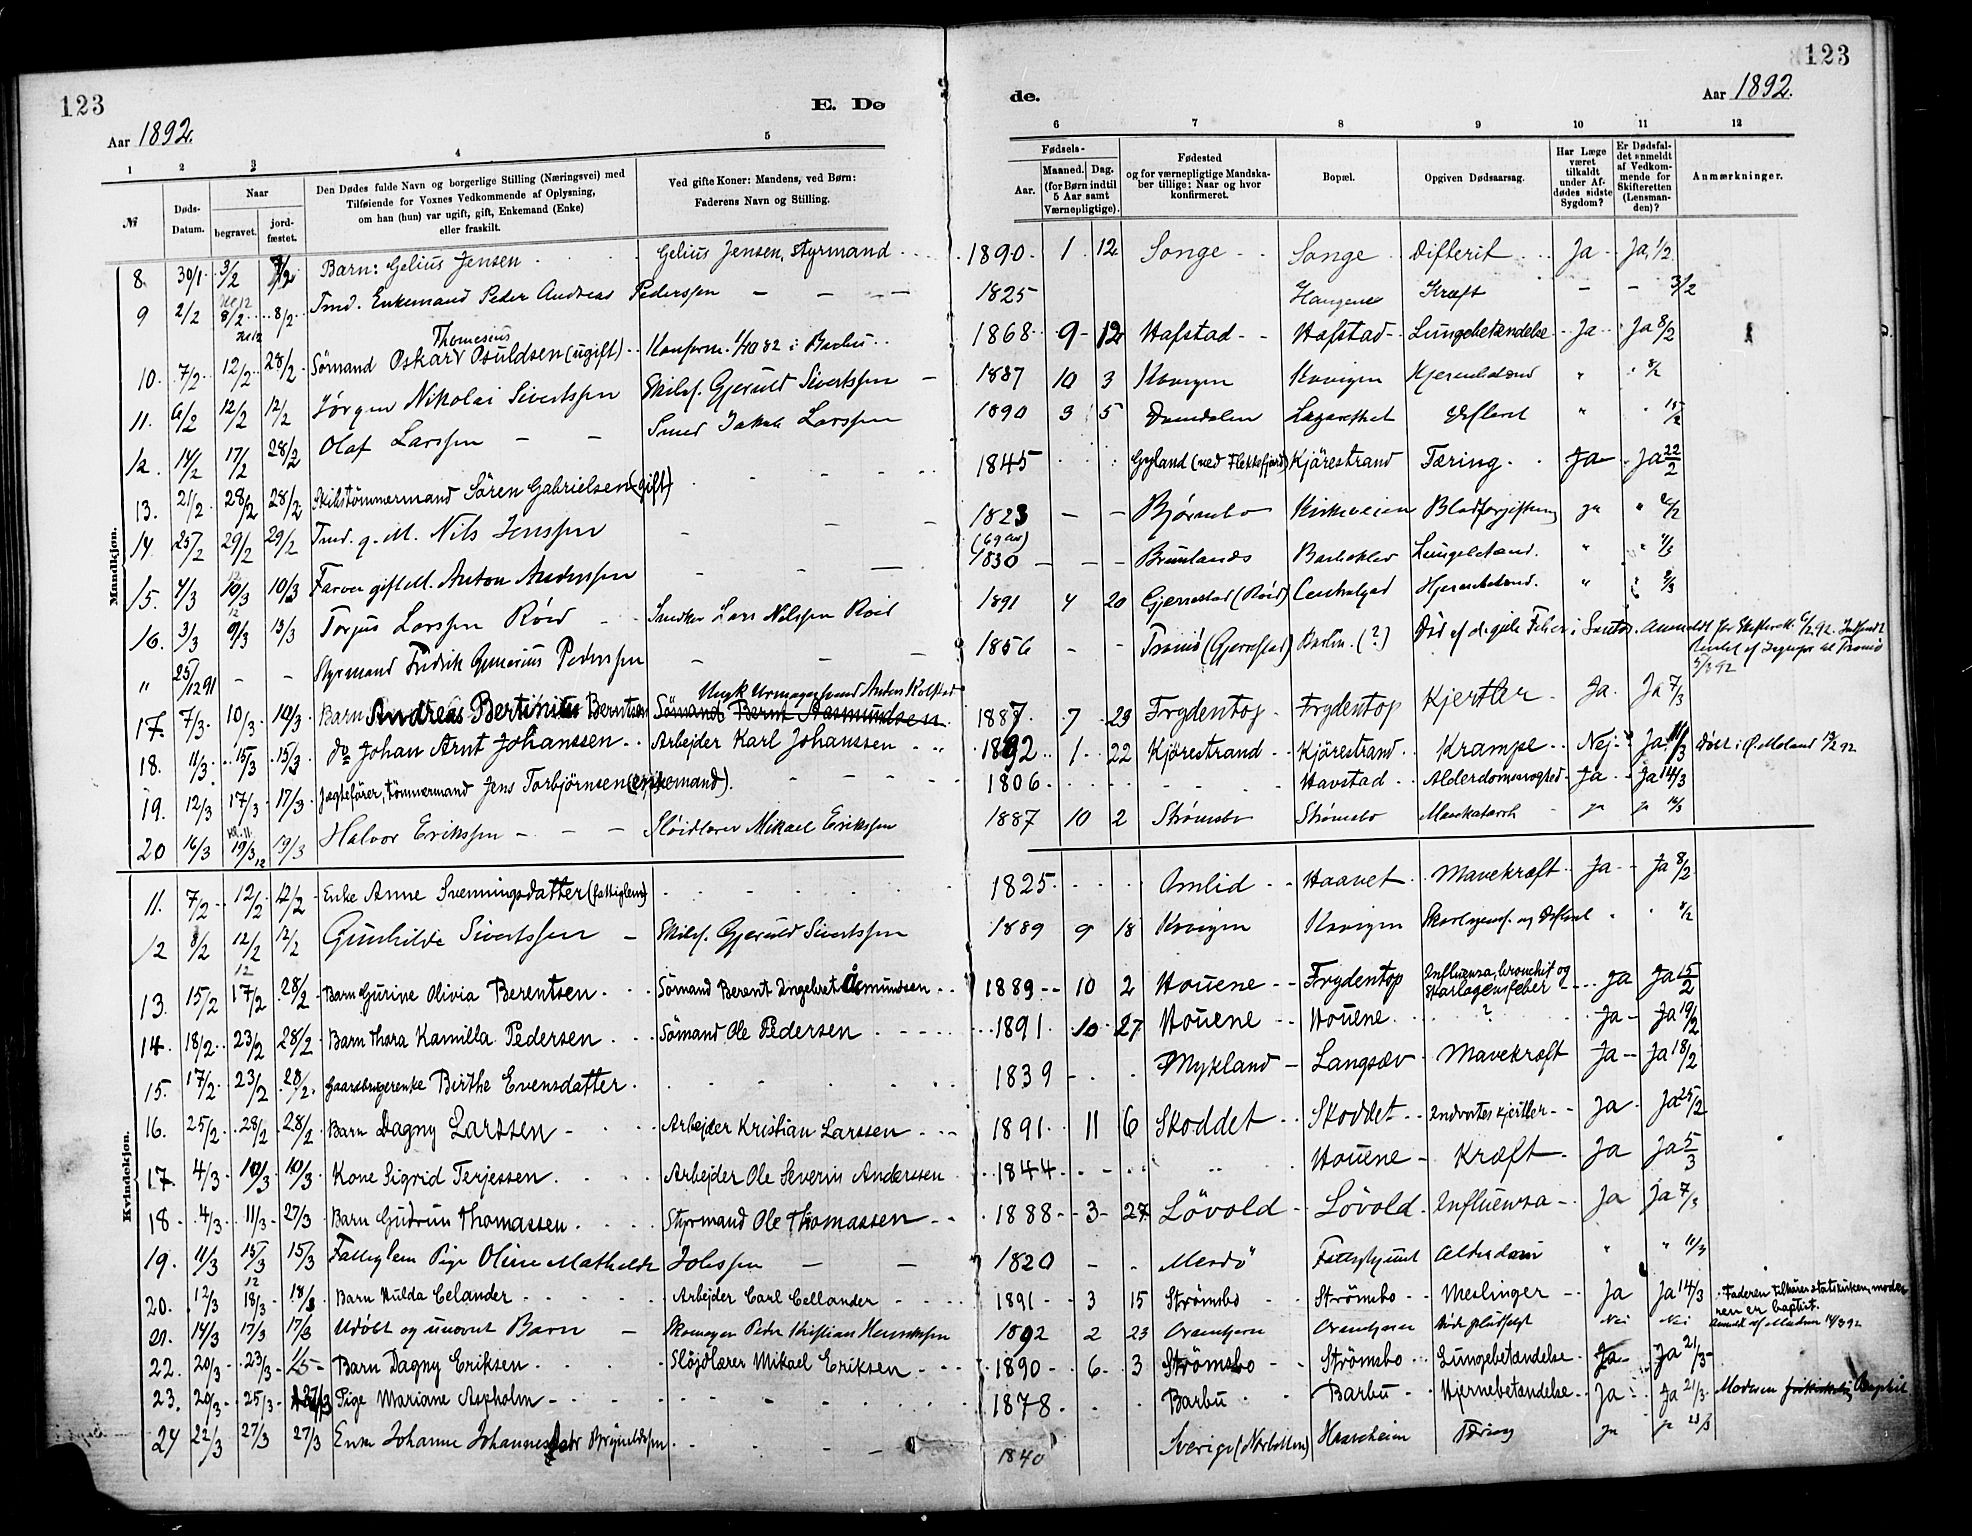 123
E. Dø
de.
123
Aar 1892.
Aar 1892.
1 2 3 4 5 6 7 8 9 10 11 12
№
Døds-Datum.
Naar
begravet.
jord-fæstet.
Den Dødes fulde Navn og borgerlige Stilling (Næringsvei) med
Tilføiende for Voxnes Vedkommende af Oplysning,
om han (hun) var ugift, gift, Enkemand (Enke)
eller fraskilt.
Ved gifte Koner: Mandens, ved Børn:
Faderens Navn og Stilling.
Fødsels-
Aar.
Maaned. Dag.
(for Børn indtil
5 Aar samt
Værnepligtige).
Fødested
og for værnepligtige Mandska-
ber tillige: Naar og hvor
konfirmeret.
Bopæl.
Opgiven Dødsaarsag.
Har Læge
været
tilkaldt
under Af-
dødes sidste
Sygdom?
Er Dødsfal-
det anmeldt
af Vedkom-
mende for
Skifteretten
(Lensman-
den)?
Anmærkninger.
Mandkjøn.
8 30/1 3/2 Barn: Gelius Jensen Gelius Jensen, Styrmand 1890 1 12 Songe Songe Difterit Ja Ja 1/2
9 2/2 8/2 8/2 Tmd. Enkemand Peder Andreas Pederssen 1825 Kræft 3/2
10. 7/2 12/2 28/2 Sömand Oskar Thomesius Osuldsen (ugift) Konform. 1/10 82 i Barbu 1868 9 12 Hafstad Hafstad Lungebetændelse Ja Ja 8/2
11. 6/2 12/2 12/2 Jörgen Nikolai Sivertssen Gjeruld Sivertssen 1887 10 3 Kovigen Kovigen " " 8/2
12. 14/2 17/2 28/2 Olaf Larssen Smed Jakob Larssen 1890 3 5 Lazarethet " " 15/2
13. 21/2 28/2 28/2 Skibstömmermand Sören Gabrielsen (gift) 1845 Gyland (ved Flekkefjord) Kjärestrand Tæring Ja Ja 22/2
14. 25/2 29/2 29/2 Tmd. g. M. Nils Jenssen 1823 (69 aar) Bjørnebo Kirkeveien Blodforgiftning ja "
15. 4/3 10/3 10/3 Farver gift M. Anton Anderssen 1830 Brunlanæs Lungebetænd. " "
16. 3/3 9/3 13/3 Torjus Larssen Röid Snedker Lars Nilssen Röid 1891 4 20 Gjerrestad (Röid) Hjernebetænd. "
" 25/12 91 Styrmand Fredrik Gunerius Pederssen 1856 Tromö (Gjerrestad) Barbu. (?) Död af de gule Feber i Santos.
17. 7/3 10/3 10/3 Barn Andreas Bertinius Berntsen Sömand Bernt Aasmundsen 1887 7 29 Frydentop Frydentop Kjertler Ja Ja 7/3
18. 11/3 15/3 15/3 do Johan Arnt Johanssen Arbejder Karl Johanssen 1892 1 22 Kjörestrand Kjörestrand Krampe Nej Ja 11/3 Döbt i Ø. Moland
19. 12/3 17/3 17/3 Jagtefører, tömmermand Jens Torbjörnsen (enkemand) 1806 Havstad Alderdomssvaghed Ja Ja 14/3
20 16/3 19/3 19/3 Halvor Erikssen Slöidlærer Mikael Erikssen 1887 10 2 Strömsbo Strömsbo Mavekatarrh ja ja
Kvindekjøn.
11. 7/2 12/2 12/2 Enke Anne Svenningsdatter (fattiglem) 1825 Omlid Haavet Mavekræft Ja Ja 8/2
12 8/2 12/2 12/2 Gunhilde Sivertssen Gjeruld Sivertssen 1889 9 18 Kovigen Kovigen " " 8/2
13. 15/2 17/2 28/2 Barn Gurine Olivia Berentsen Sömand Berent Ingebret Åsmundsen 1889 10 2 Houene Frydentop Influensa, bronchit og Skarlagensfeber Ja Ja 15/2
14. 18/2 23/2 28/2 Barn Thora Kamilla Pedersen Sömand Ole Pedersen 1891 10 27 Houene Houene ? Ja Ja 19/2
15. 17/2 23/2 28/2 Gaardbrugerenke Birthe Evensdatter 1839 Mykland Langsæv Mavekræft Ja Ja 18/2
16. 25/2 28/2 28/2 Barn Dagny Larssen Arbejder Kristian Larssen 1891 11 6 Skoddet Skoddet Indvortes kjertler Ja Ja 25/2
17. 4/3 10/3 10/3 Kone Sigrid Terjessen Arbejder Ole Severin Anderssen 1844 Houene Kræft Ja Ja 5/3
18 4/3 11/3 27/3 Barn Gudrun Thomassen Styrmand Ole Thomassen 1888 3 27 Lövold Lövold Influensa Ja Ja 7/3
19. 11/3 15/3 15/3 Fattiglem Pige Oline Mathilde Johssen 1820 Merdö Alderdom " " 11/3
20. 12/3 18/3 18/3 Barn Hulda Celander Arbejder Carl Cellander 1891 3 15 Strömsbo Strömsbo Meslinger Ja Ja 14/3 Faderen tilhører statskirken, moderen er baptist.
21. 14/3 17/3 17/3 Udöbt og unavnt Barn Skomager Peder Kristian Henrikssen 1892 2 23 Nei Nei
22. 20/3 23/3 25 Barn Dagny Eriksen Slöjdlærer Mikael Eriksen 1890 6 3 Strömsbo Strömsbo Lungebetændelse Ja Ja 21/3
23. 20/3 25/3 27/3 Pige Mariane Aspholm 1878 Barbu Barbu Hjernebetændelse Ja Ja 21/3 Moderen Baptist
24 22/3 27/3 27/3 Enke Johanne Johannesdatr Brynildssen 1840 Sverige (Norbotten) Tæring ja ja 23/3